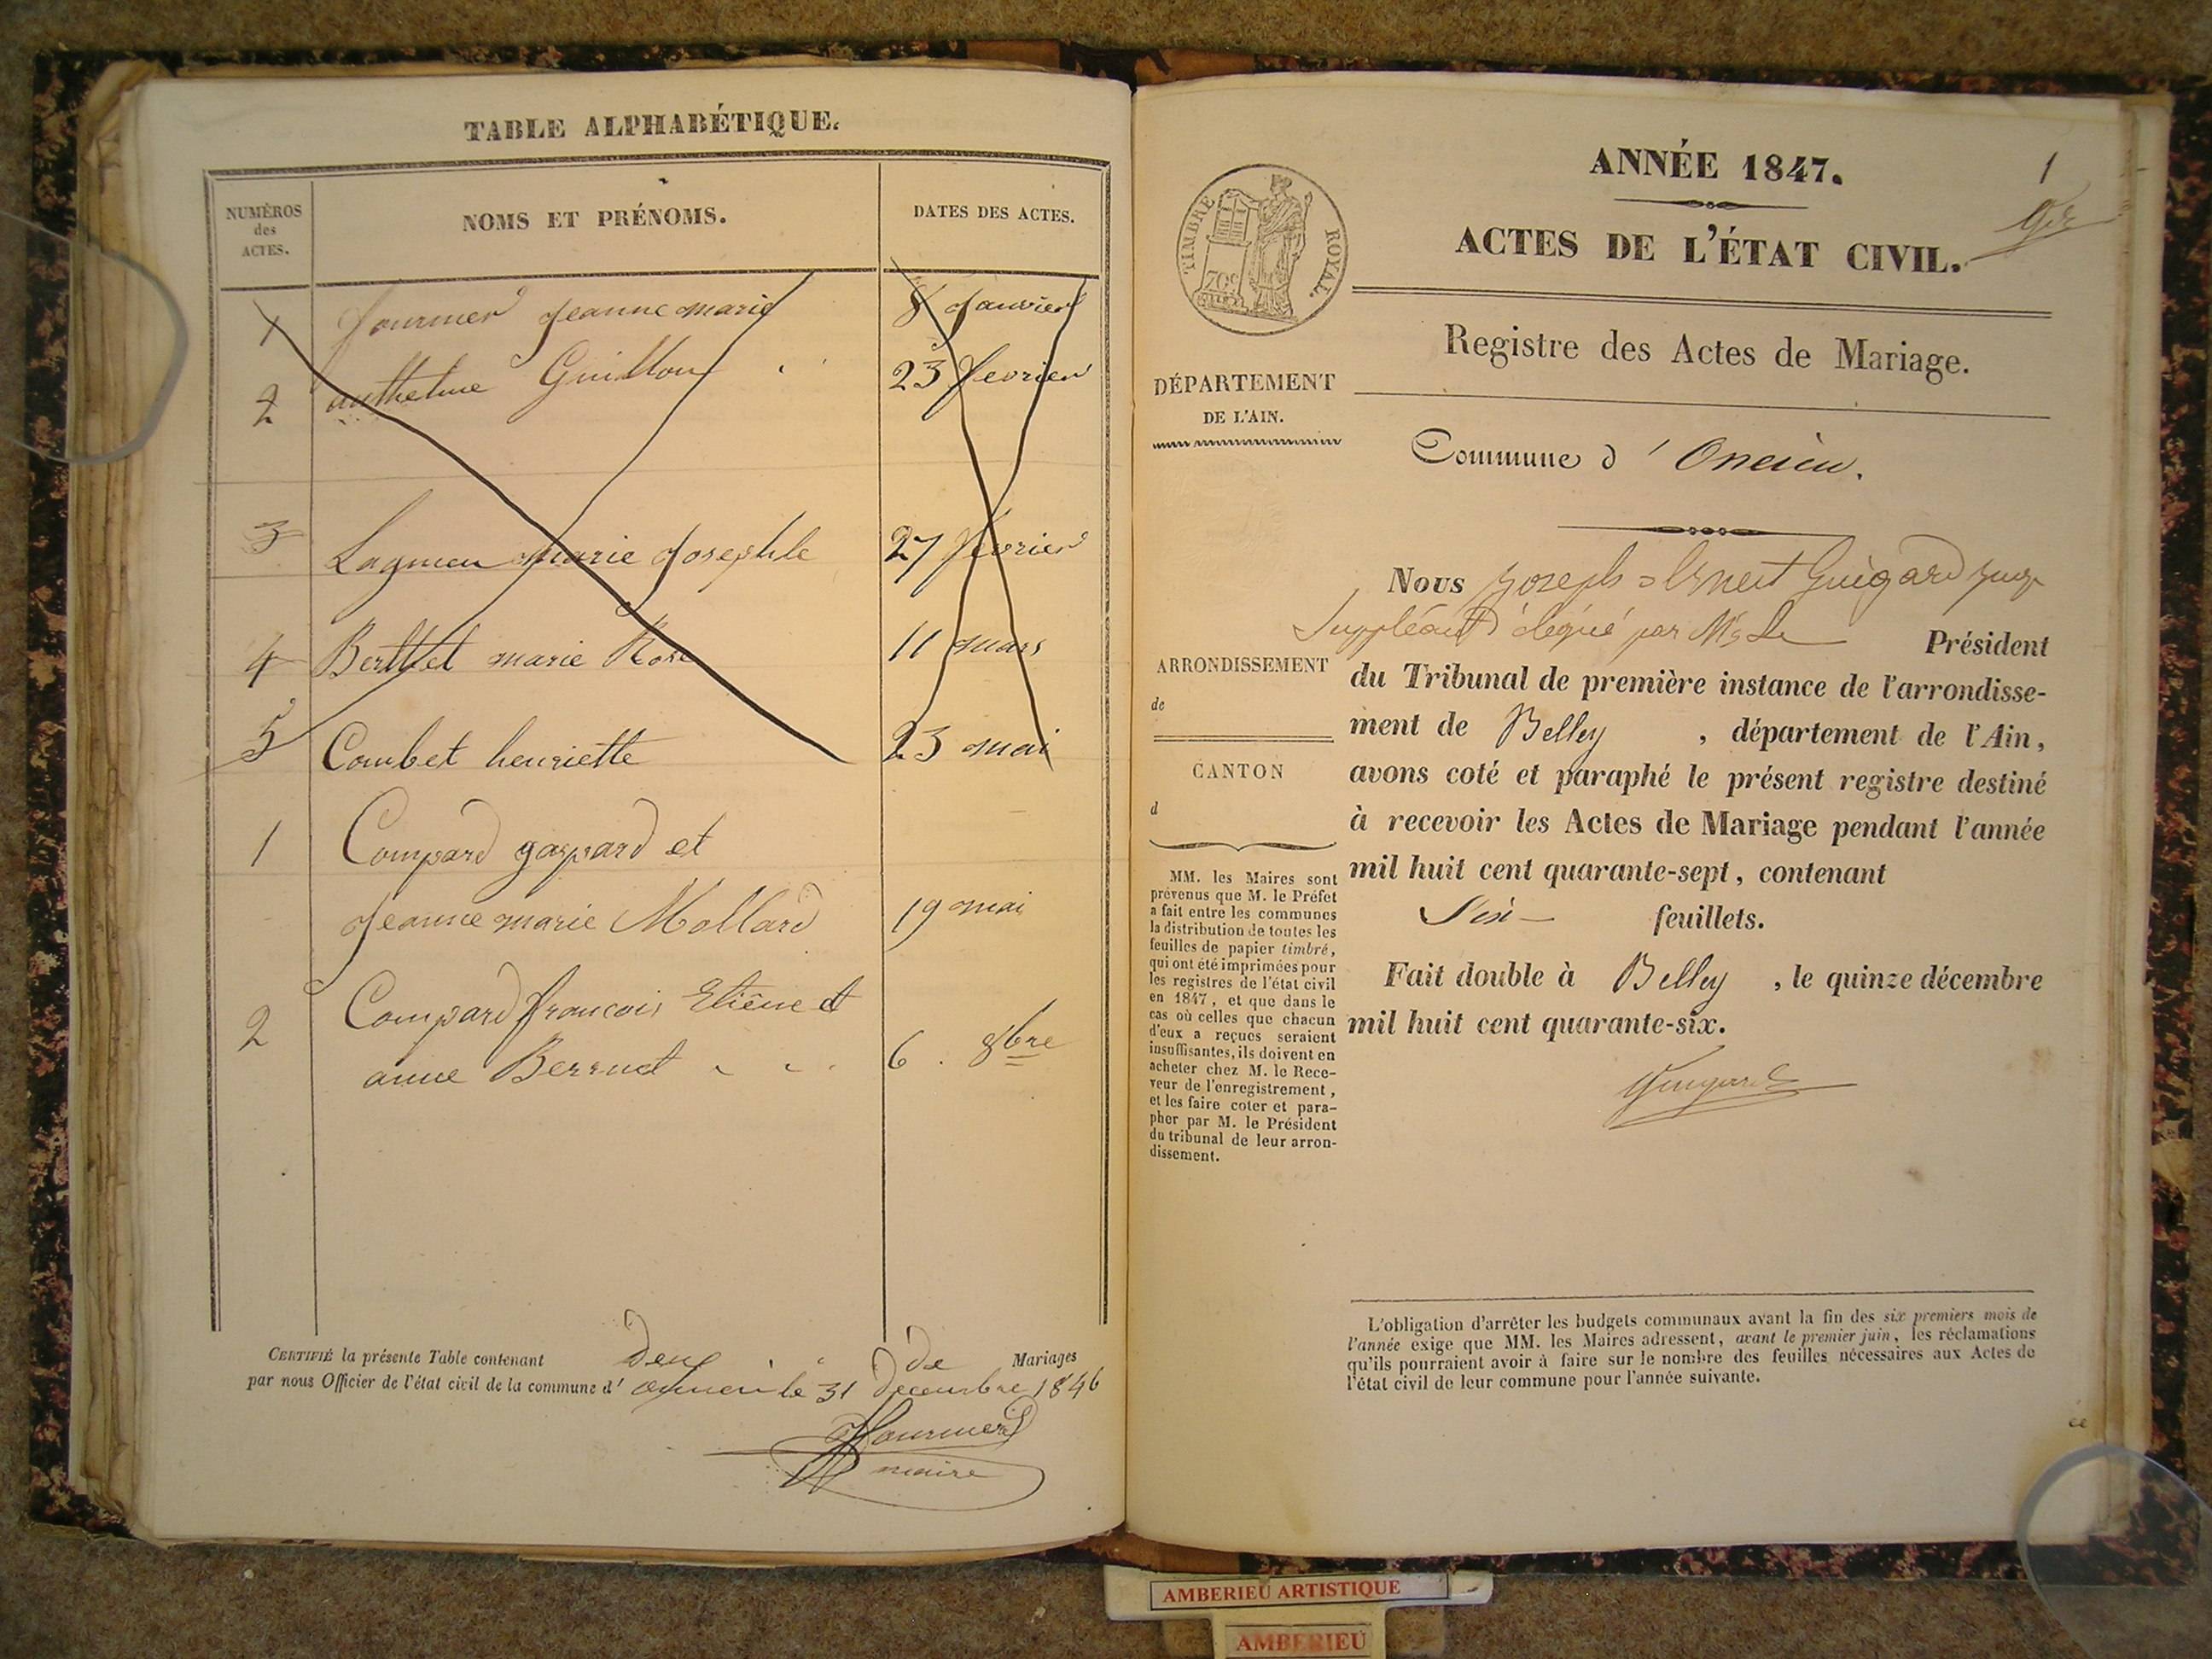 TABLE ALPHABÉTIQUE.
NUMÉROS
des
ACTES.
NOMS ET PRÉNOMS.
DATES DES ACTES.
1 fournier jeanne marie 8 janvier
2 anthelme Guillon 23 fevrier
3 Lagneu marie josephte 27 fevrier
4 Berthet marie Rose 11 mars
5 Combet henriette 23 mai
1 Compard gaspard et
jeanne marie Mollard 19 mai
2 Compard francois Etiene et
anne Berrud 6. 8bre
CERTIFIÉ la présente Table contenant deux de Mariages
par nous Officier de l'état civil de la commune d' le 31 Decembre 1846
fournier
maire
1
ANNÉE 1847.
ACTES DE L'ÉTAT CIVIL.
TIMBRE ROYAL.
70c
Registre des Actes de Mariage.
DÉPARTEMENT
DE L'AIN.
Commune d' Oncieu.
Nous joseph Ernest Guigard juge
Suppléant délégué par Mr Le Président
du Tribunal de première instance de l'arrondisse-
ment de Belley , département de l'Ain,
avons coté et paraphé le présent registre destiné
à recevoir les Actes de Mariage pendant l'année
mil huit cent quarante-sept, contenant
Six feuillets.
Fait double à Belley , le quinze décembre
mil huit cent quarante-six.
Guigard
ARRONDISSEMENT
de
CANTON
d
MM. les Maires sont
prévenus que M. le Préfet
a fait entre les communes
la distribution de toutes les
feuilles de papier timbré,
qui ont été imprimées pour
les registres de l'état civil
en 1847, et que dans le
cas où celles que chacun
d'eux a reçues seraient
insuffisantes, ils doivent en
acheter chez M. le Rece-
veur de l'enregistrement,
et les faire coter et para-
pher par M. le Président
du tribunal de leur arron-
dissement.
L'obligation d'arrêter les budgets communaux avant la fin des six premiers mois de
l'année exige que MM. les Maires adressent, avant le premier juin, les réclamations
qu'ils pourraient avoir à faire sur le nombre des feuilles nécessaires aux Actes de
l'état civil de leur commune pour l'année suivante.
AMBERIEU ARTISTIQUE
AMBERIEU